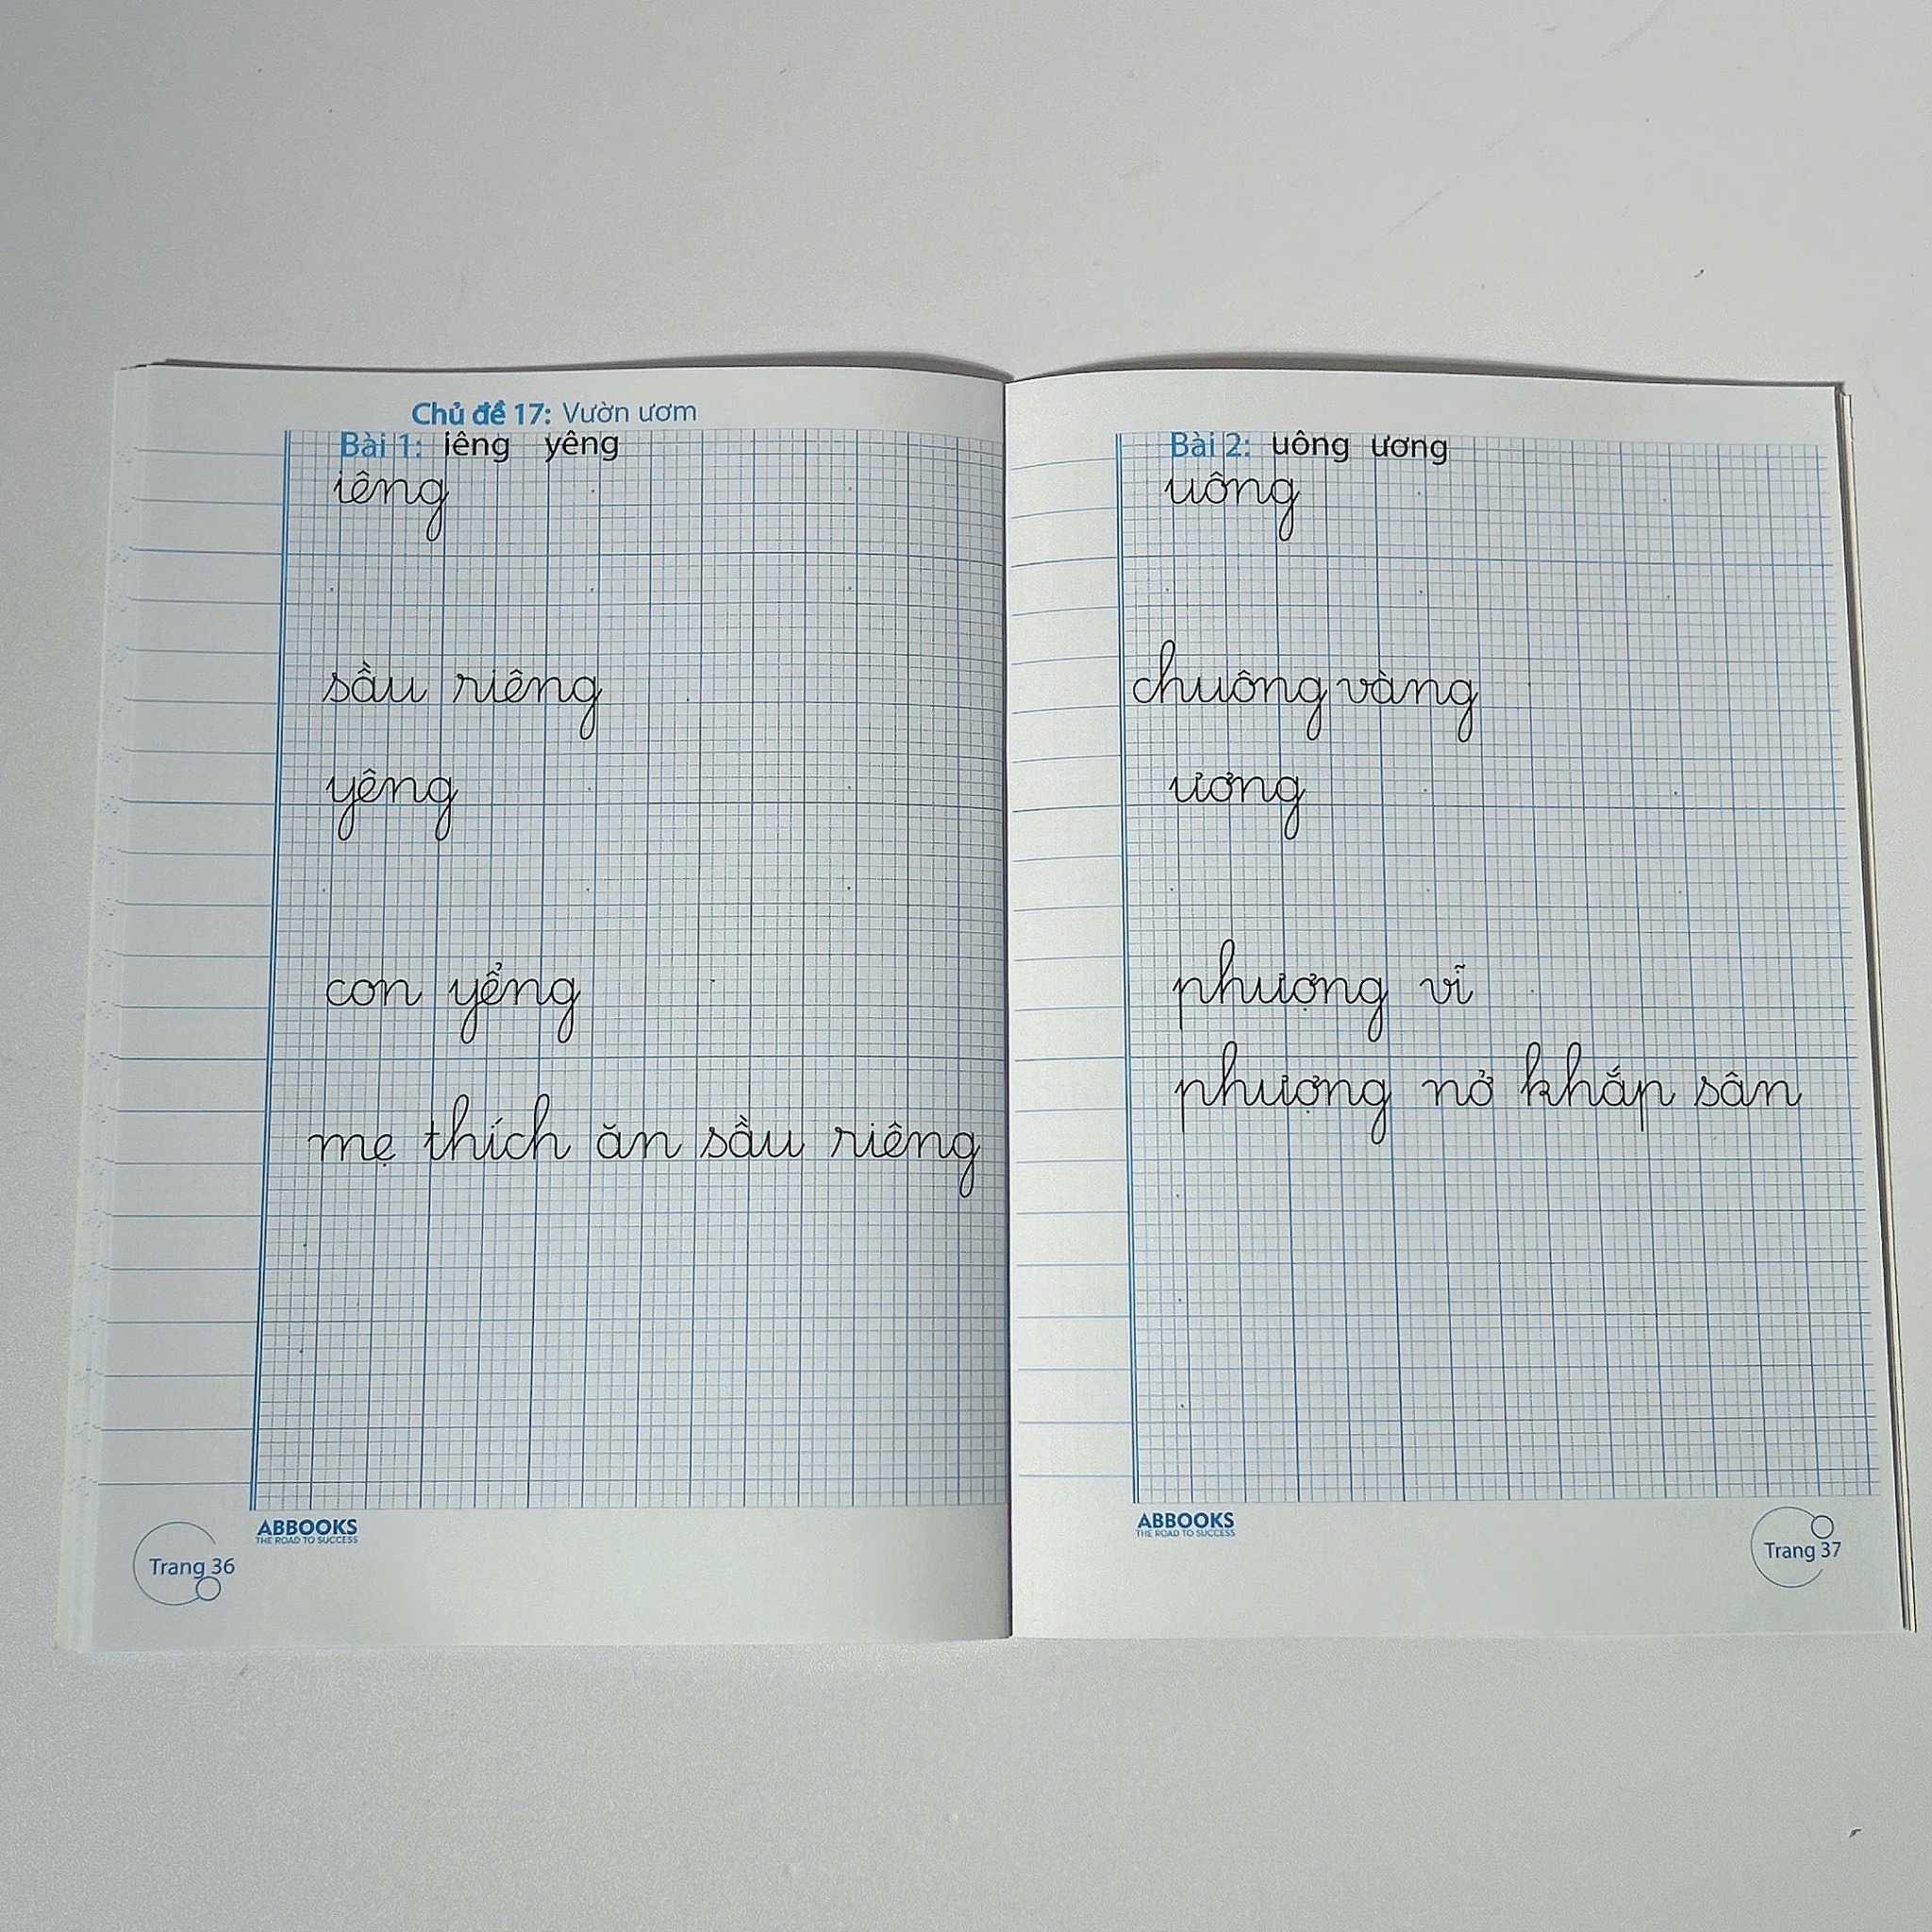 Chủ đề 17: Vườn ươm
Bài 1: iêng yêng
iêng
sầu riêng
yêng
con yểng
mẹ thích ăn sầu riêng
ABBOOKS
THE ROAD TO SUCCESS
Trang 36
Bài 2: uông ương
uông
chuông vàng
ương
phượng vĩ
phượng nở khắp sân
ABBOOKS
THE ROAD TO SUCCESS
Trang 37